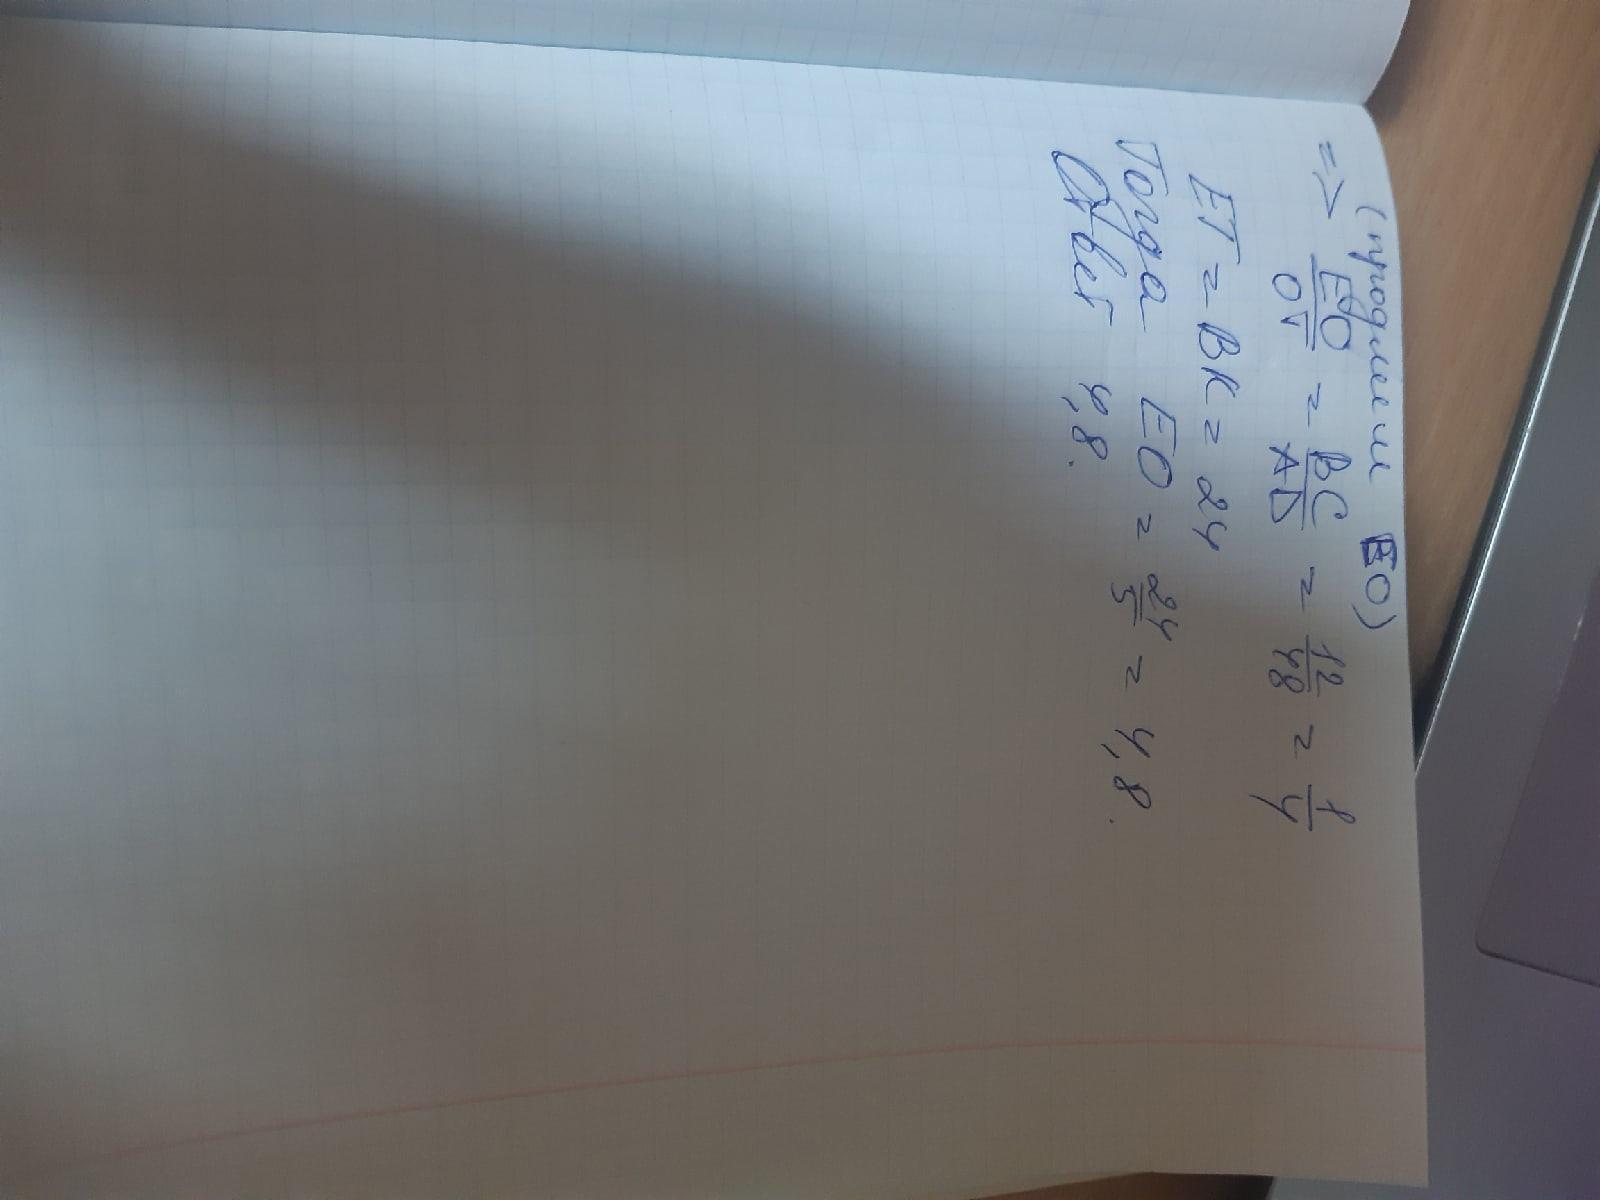 (продлим EO)
=> EO/OT = BC/AD = 12/48 = 1/4
ET = BK = 24
Тогда EO = 24/5 = 4,8.
Ответ 4,8.